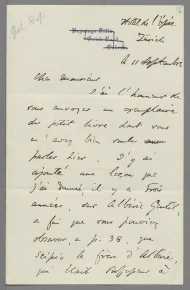 Hôtel de l'Épée
Zürich
le 11 Septembre
Cher Monsieur
J'ai l'honneur de
vous envoyer un exemplaire
du petit livre dont vous
m'avez bien
parler hier. J'y ai
ajouté une leçon que
j'ai donné il y a trois
années, sur Albéric Gentil,
a fin que vous pouviez
observer a p. 38, que
Scipio le frère d'Albéric,
qui était Professeur à